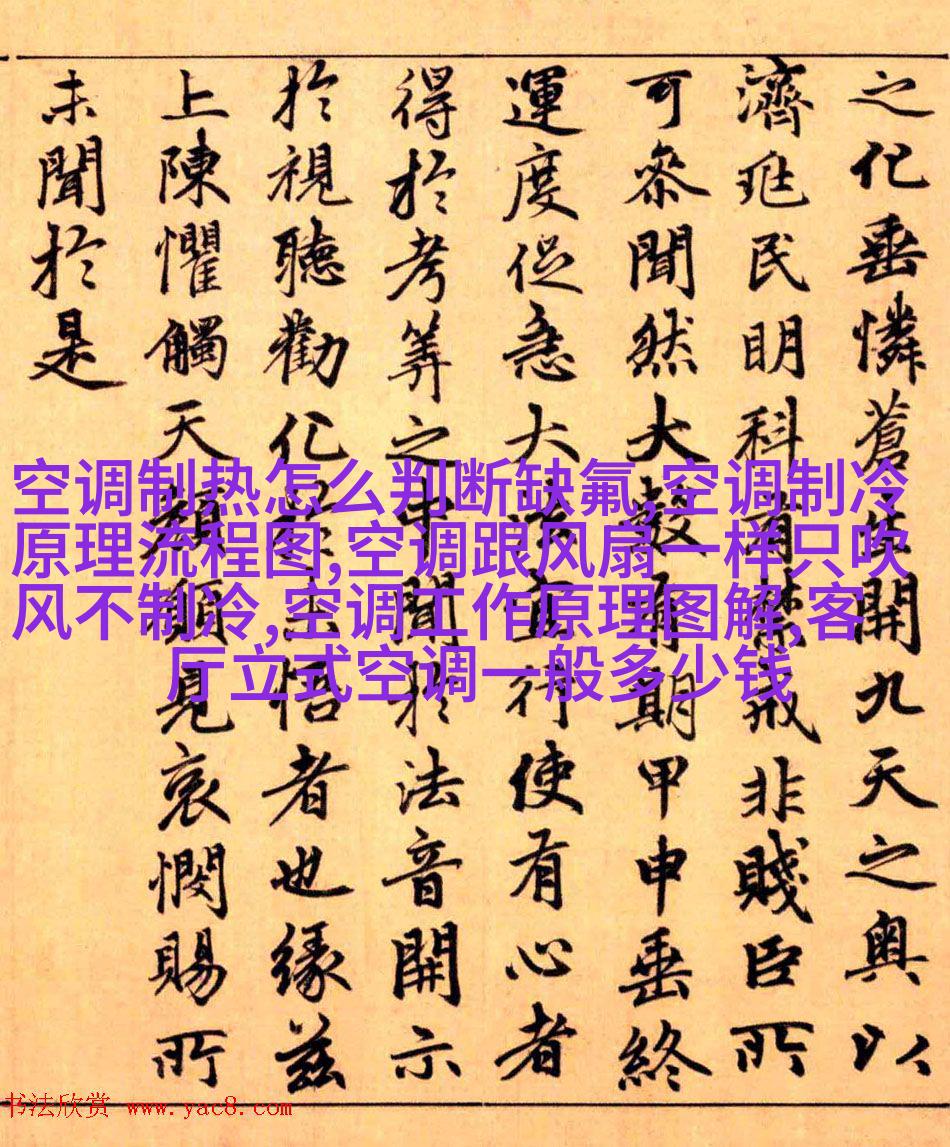 之化垂憐蒼生開九天之奥以
濟兆民明科有禁戒非賤臣所
可參聞然大數有期甲申垂終
運度促急大法宜行使有心者
得於考筭之中聞於法音開示
於視聽勸化於未悟者也緣茲
上陳懼觸天顏願見哀憫賜所
未聞於是
空调制热怎么判断缺氟,空调制冷
原理流程图,空调跟风扇一样只吹
风不制冷,空调工作原理图解,客
厅立式空调一般多少钱
书法欣赏 www.yac8.com